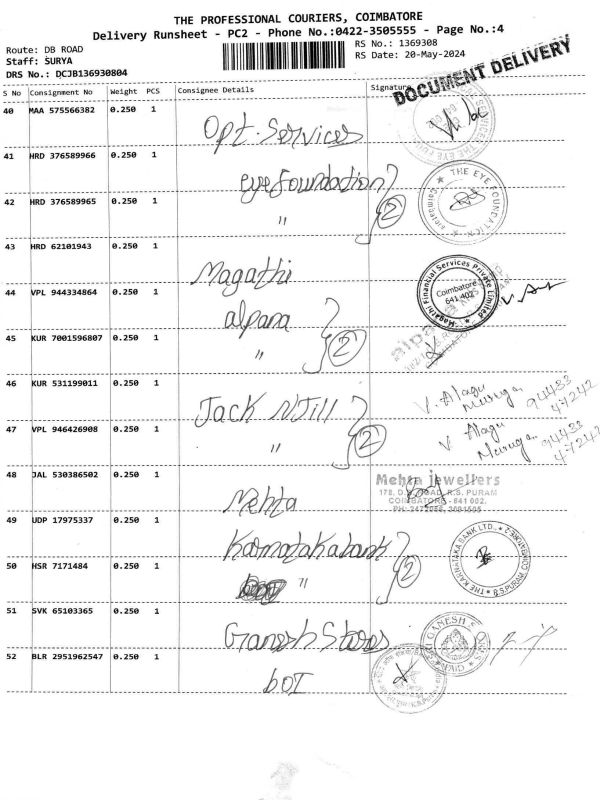 THE PROFESSIONAL COURIERS, COIMBATORE
Delivery Runsheet - PC2 - Phone No.:0422-3505555 - Page No.:4
Route: DB ROAD
RS No.: 1369308
Staff: SURYA
RS Date: 20-May-2024
DRS No.: DCJB136930804
DOCUMENT DELIVERY
S No Consignment No Weight PCS Consignee Details Signature
40 MAA 575566382 0.250 1
Opt. Services
41 HRD 376589966 0.250 1
eye foundation
THE EYE FOUNDATION
Coimbatore
42 HRD 376589965 0.250 1
" 2
43 HRD 62101943 0.250 1
Magathi
Magathi Financial Services Private Limited
Coimbatore
641 402
44 VPL 944334864 0.250 1
alpana
V.
45 KUR 7001596807 0.250 1
" 2
46 KUR 531199011 0.250 1
Jack N Jill
V. Alagu
Muruga
94433
47242
47 VPL 946426908 0.250 1
" 2
V Alagu
Muruga
94433
47242
48 JAL 530386502 0.250 1
Mehta
Mehta jewellers
178, D.B. ROAD, R.S. PURAM
COIMBATORE - 641 002.
49 UDP 17975337 0.250 1
Karnataka bank
THE KARNATAKA BANK LTD.,
R.S.PURAM, COIMBATORE-2
50 HSR 7171484 0.250 1
" 2
51 SVK 65103365 0.250 1
Ganesh Stores
GANESH
52 BLR 2951962547 0.250 1
bOI